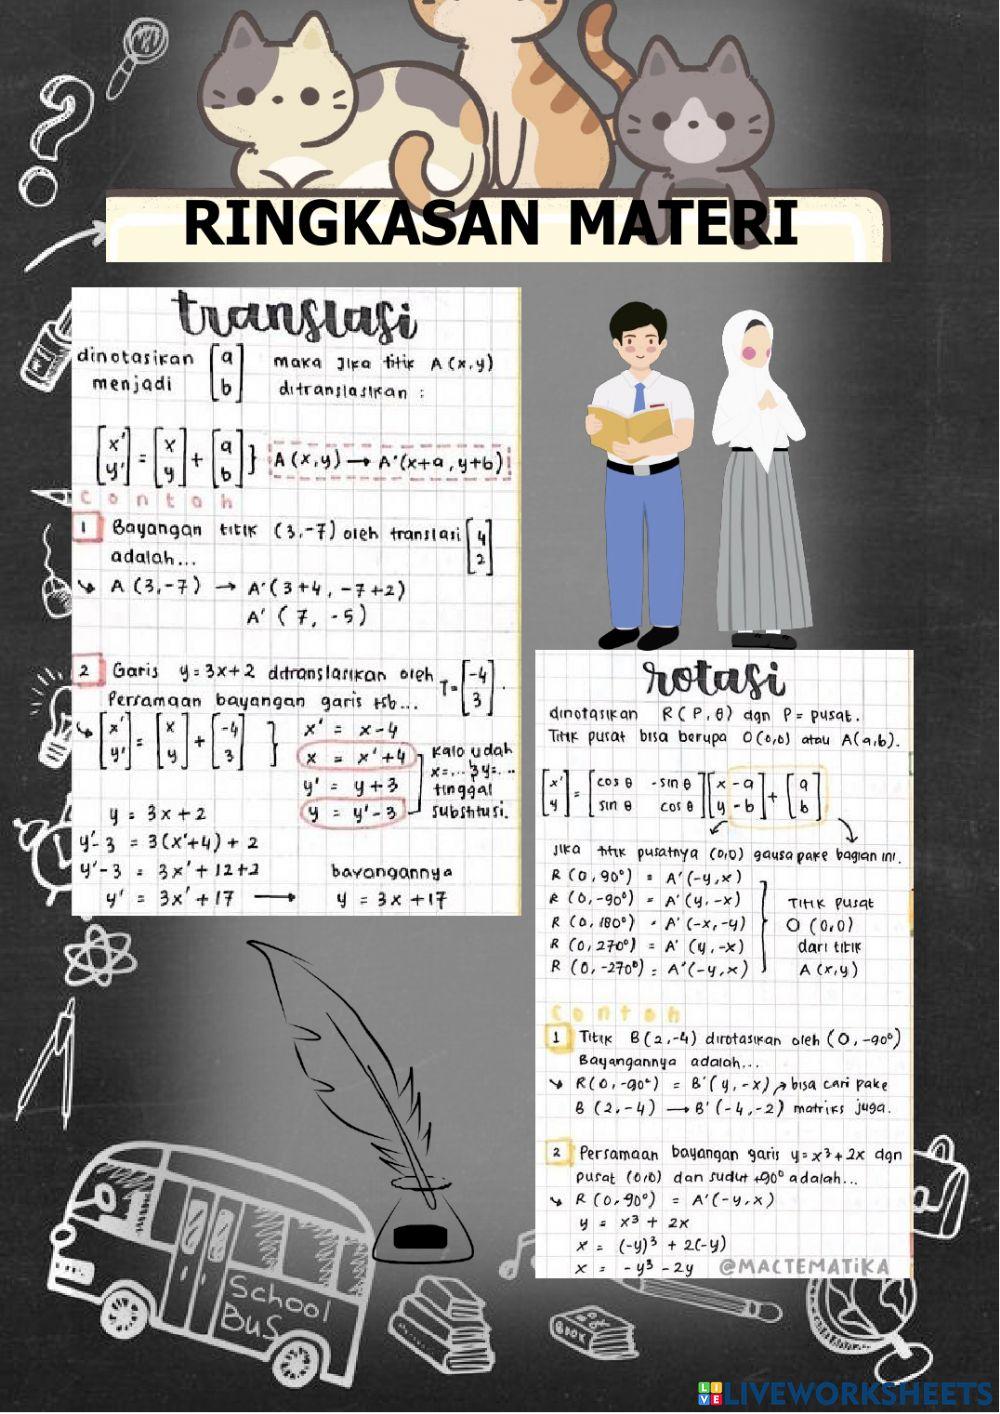 RINGKASAN MATERI
translasi
dinotasikan [a b] maka jika titik A(x,y)
menjadi ditranslasikan :
[x' y'] = [x y] + [a b] } A(x,y) → A'(x+a, y+b)
Contoh
1 Bayangan titik (3,-7) oleh translasi [4 2]
adalah...
↳ A (3,-7) → A'(3+4, -7+2)
A' (7, -5)
2 Garis y=3x+2 ditranslasikan oleh T=[-4 3].
Persamaan bayangan garis tsb...
↳ [x' y'] = [x y] + [-4 3] }
x' = x-4
x = x'+4
y' = y+3
y = y'-3
kalo udah
x=... & y=...
tinggal
substitusi.
y = 3x+2
y'-3 = 3(x'+4) + 2
y'-3 = 3x'+12+2
y' = 3x'+17 →
bayangannya
y = 3x+17
rotasi
dinotasikan R(P,θ) dgn P= pusat.
Titik pusat bisa berupa O(0,0) atau A(a,b).
[x' y'] = [cos θ -sin θ sin θ cos θ][x-a y-b] + [a b]
Jika titik pusatnya (0,0) gausa pake bagian ini.
R (0, 90°) = A'(-y,x)
R (0,-90°) = A'(y,-x)
R (0, 180°) = A'(-x,-y)
R (0, 270°) = A' (y,-x)
R (0,-270°) = A'(-y,x)
Titik pusat
O (0,0)
dari titik
A (x,y)
Contoh
1 Titik B(2,-4) dirotasikan oleh (0,-90°)
Bayangannya adalah...
↳ R(0,-90°) = B'(y,-x) → bisa cari pake
B (2,-4) → B'(-4,-2) matriks juga.
2 Persamaan bayangan garis y=x³+2x dgn
pusat (0,0) dan sudut +90° adalah...
↳ R (0,90°) = A'(-y,x)
y = x³ + 2x
x = (-y)³ + 2(-y)
x = -y³ - 2y @MACTEMATIKA
School
Bus
BOOK
LIVE LIVEWORKSHEETS